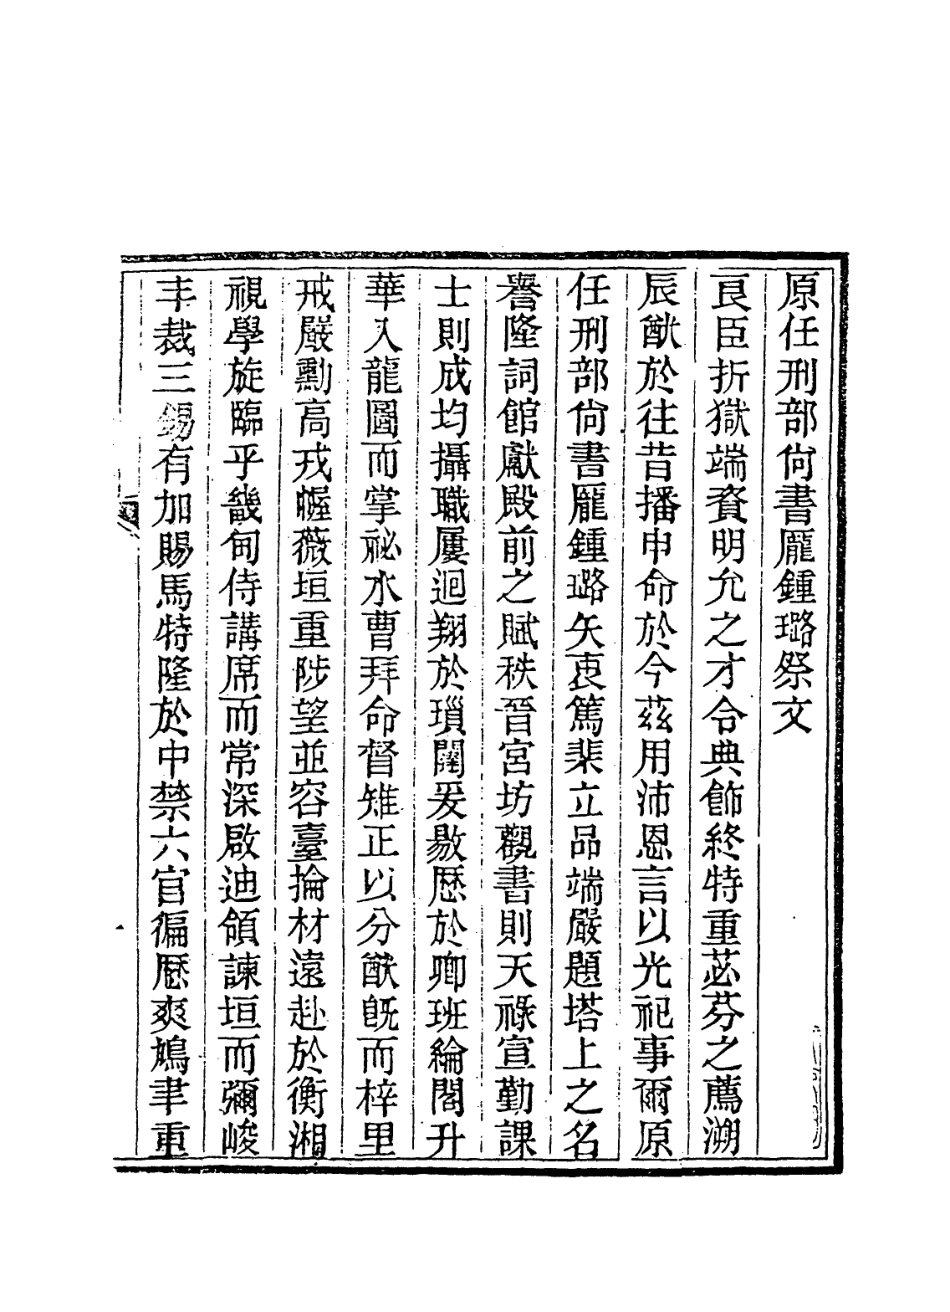 原任刑部尙書龐鍾璐祭文
良臣折獄端資明允之才令典飾終特重苾芬之薦溯
辰猷於往昔播申命於今茲用沛恩言以光祀事爾原
任刑部尙書龐鍾璐矢衷篤棐立品端嚴題塔上之名
譽隆詞館獻殿前之賦秩晉宮坊觀書則天祿宣勤課
士則成均攝職屢迴翔於瑣闥爰敭歷於卿班綸閣升
華入龍圖而掌祕水曹拜命督雉正以分猷旣而梓里
戒嚴勳高戎幄薇垣重陟望並容臺掄材遠赴於衡湘
視學旋臨乎畿甸侍講席而常深啟迪領諫垣而彌峻
丰裁三錫有加賜馬特隆於中禁六官徧歷爽鳩聿重